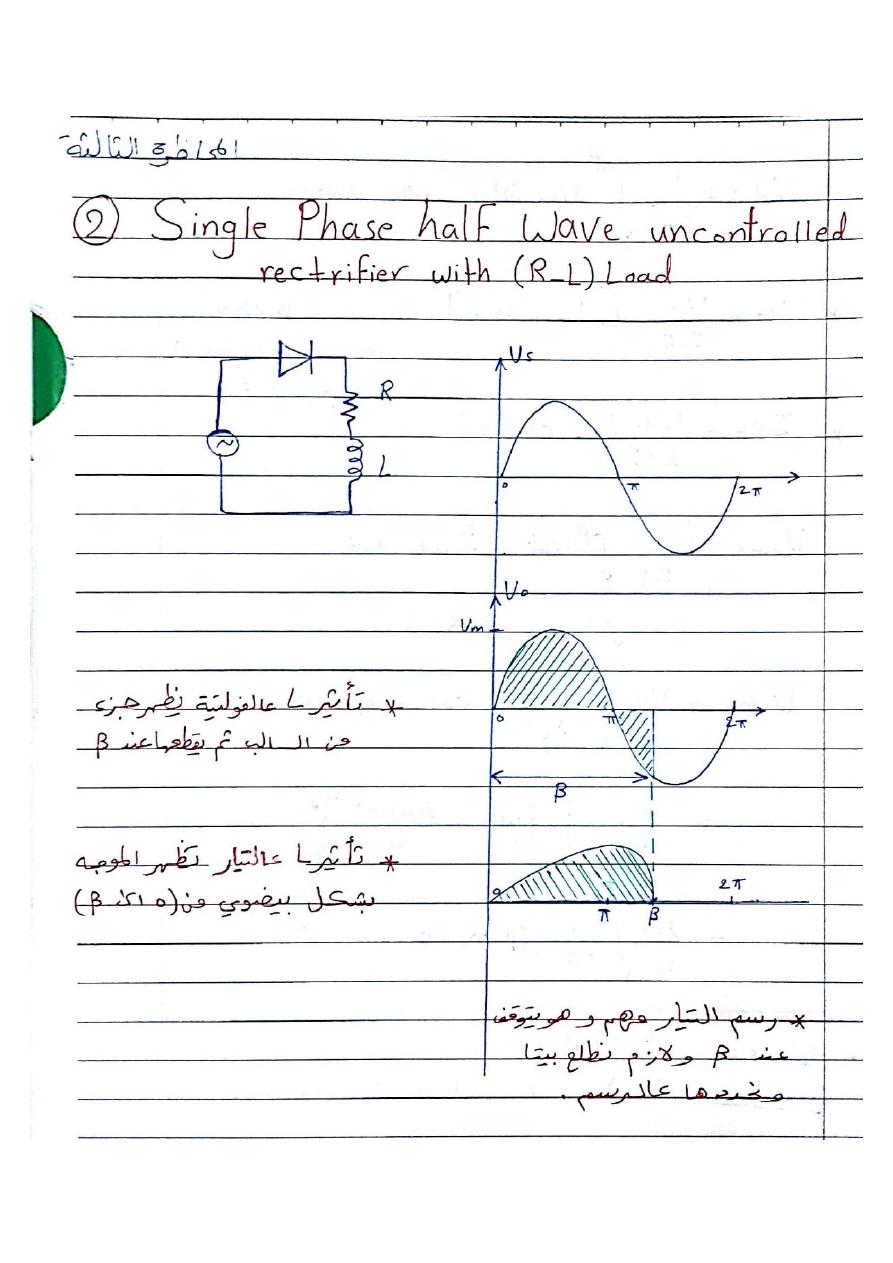 المحاضرة الثالثة
② Single Phase half Wave uncontrolled
rectrifier with (R-L) Load
R
L
Vs
0
π
2π
Vo
Vm
0
π
2π
β
* تأثير L عالفولتية يظهر جزء
من السالب ثم يقطعها عند β
* تأثير L عالتيار تظهر الموجه
بشكل بيضوي من (0 الى β)
0
π
β
2π
* رسم التيار مهم و هو يتوقف
عند β ولازم نطلع بيتا
ونحددها عالرسم.